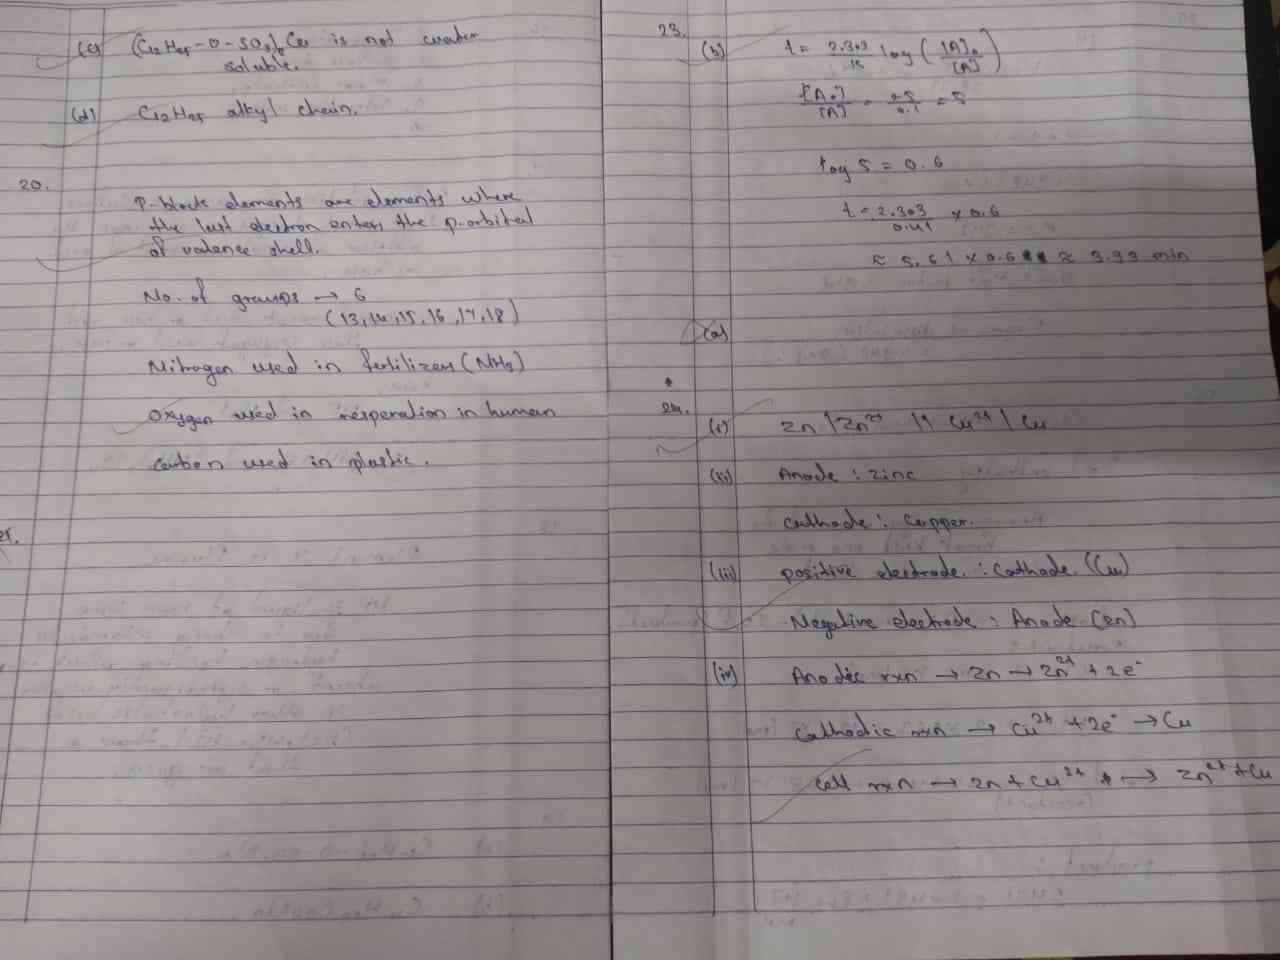 (c) (C12H25-O-SO3)2Ca is not water
soluble.
(d) C12H25 alkyl chain.
20.
P-block elements are elements where
the last electron enters the p-orbital
of valence shell.
No. of groups → 6
(13,14,15,16,17,18)
Nitrogen used in fertilizers (NH3)
Oxygen used in resperation in human
carbon used in plastic.
21.
23.
(b) t = 2.303/k log ([A]o/[A])
[Ao]/[A] = 0.5/0.1 = 5
log 5 = 0.6
t = 2.303/0.41 × 0.6
≈ 5.61 × 0.6 ≈ 3.93 min
(a)
24.
(i) Zn | Zn2+ || Cu2+ | Cu
(ii) Anode : Zinc
Cathode : Copper.
(iii) positive electrode : Cathode (Cu)
Negative electrode : Anode (Zn)
(iv) Anodic rxn → Zn → Zn2+ + 2e-
Cathodic rxn → Cu2+ + 2e- → Cu
Cell rxn → Zn + Cu2+ → Zn2+ + Cu